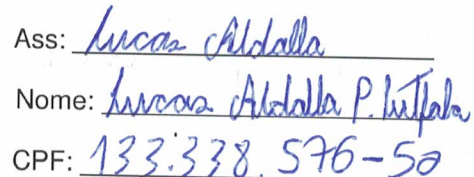 Ass: Lucas Abdalla
Nome: Lucas Abdalla P. Lutfala
CPF: 133.338.576-50